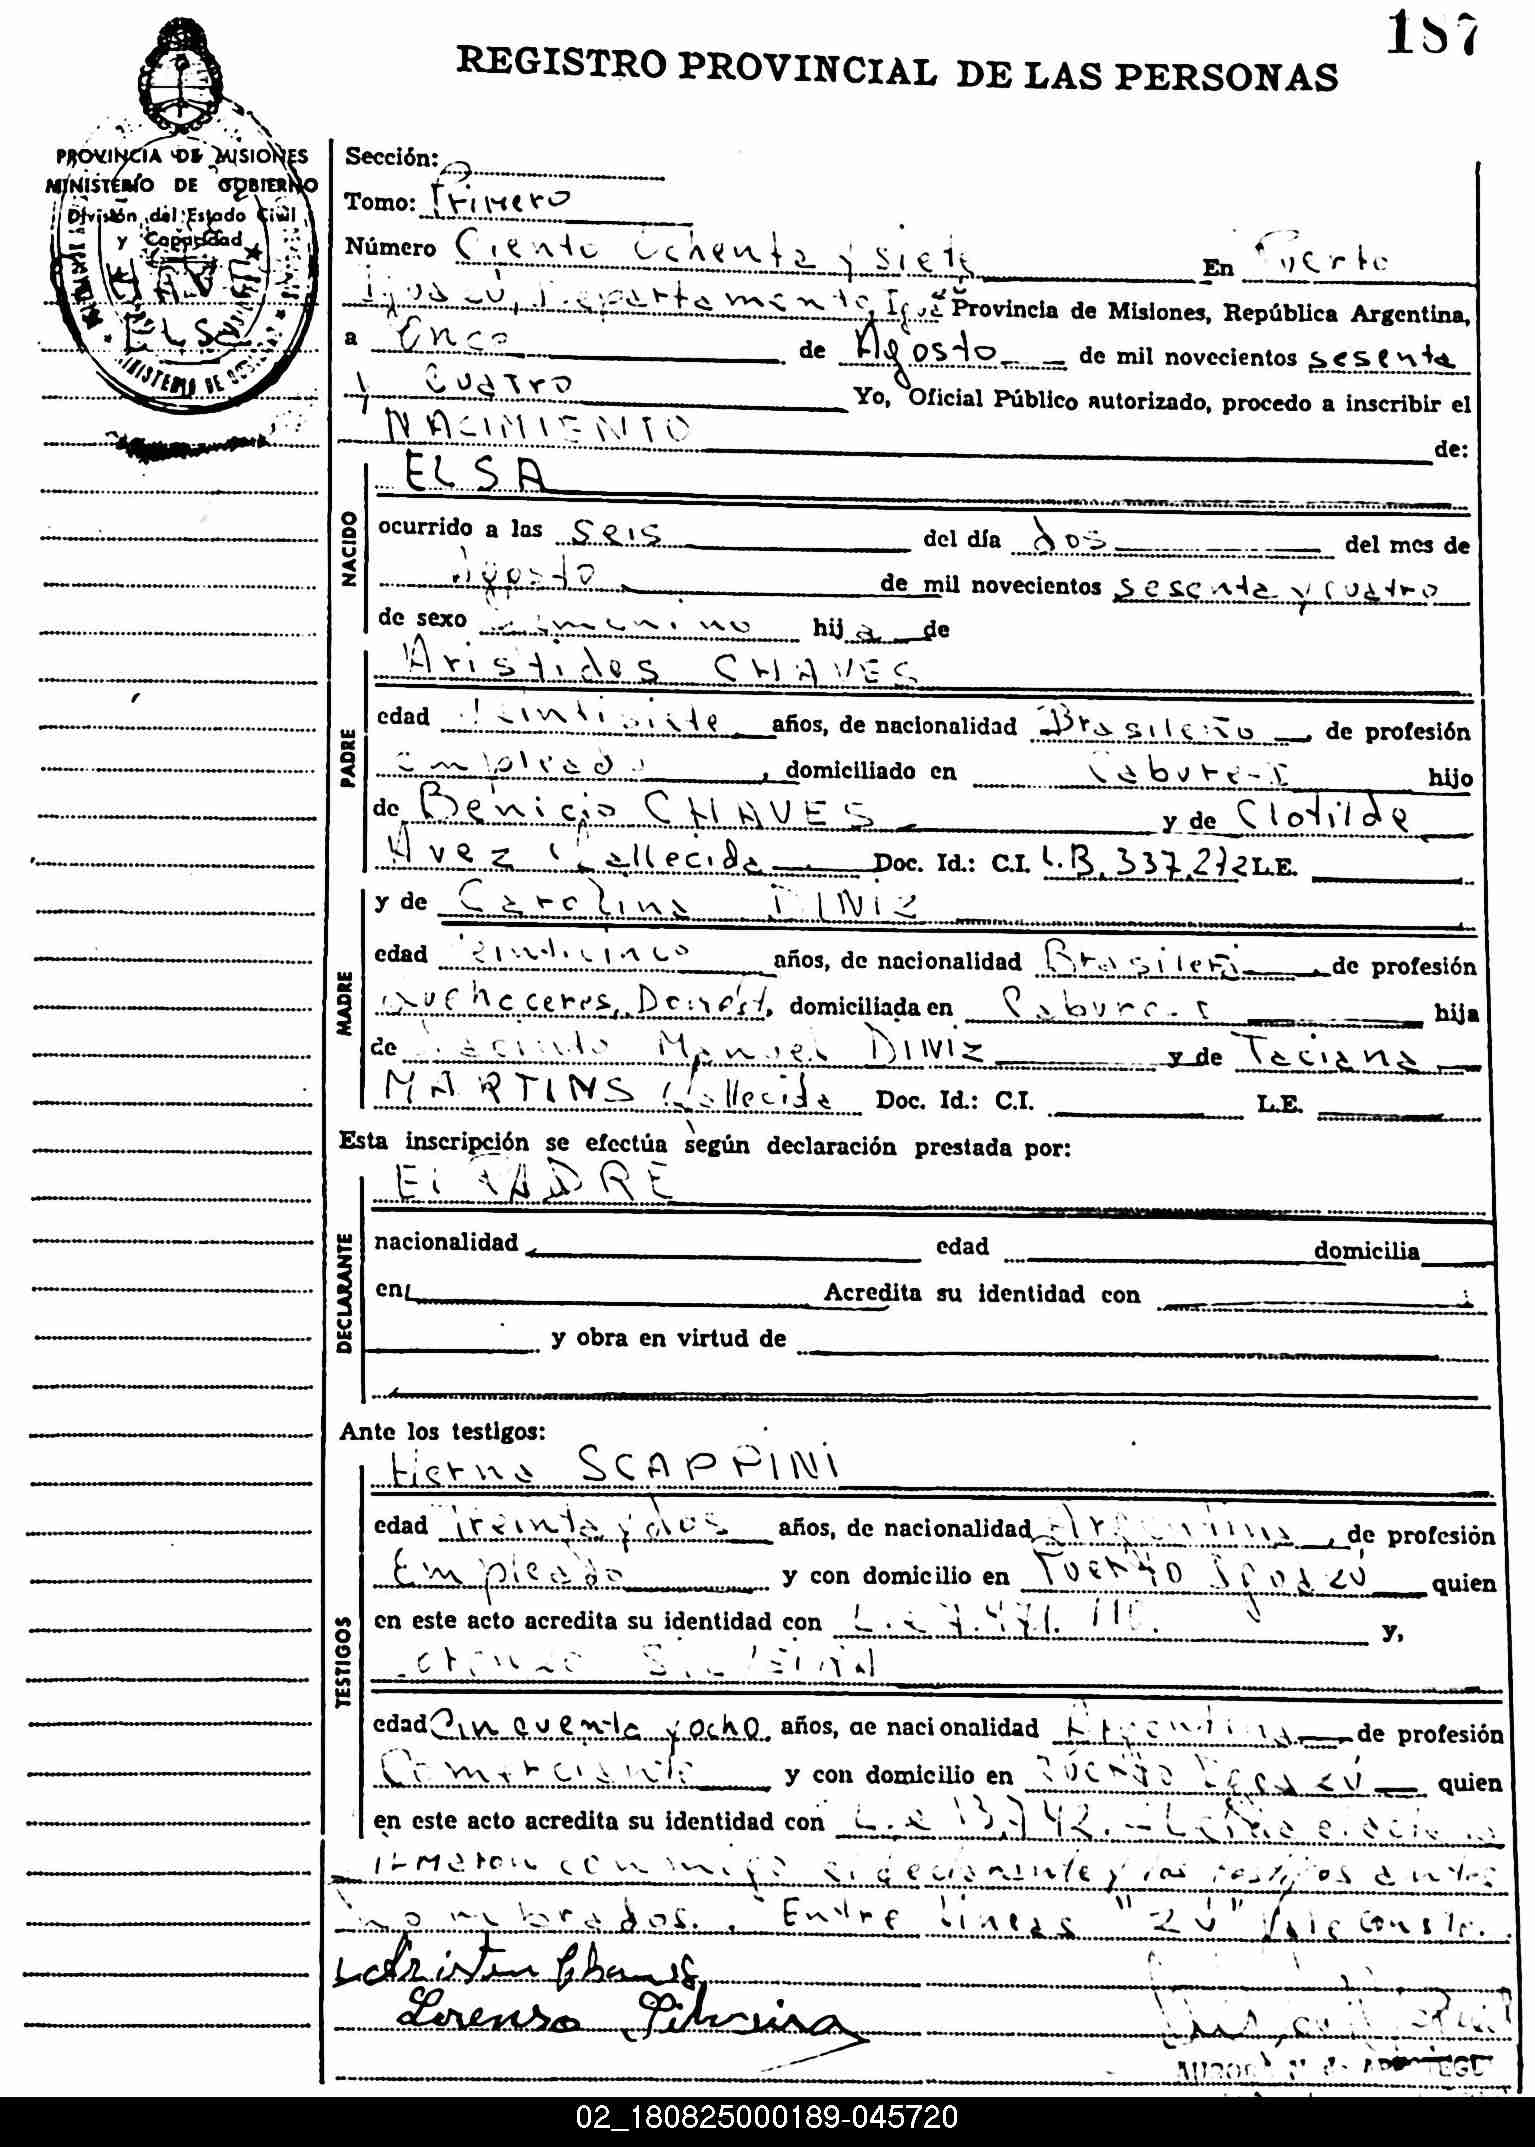 187
REGISTRO PROVINCIAL DE LAS PERSONAS
PROVINCIA DE MISIONES
MINISTERIO DE GOBIERNO
División del Estado Civil
y Capacidad
ELSA
Sección:
Tomo: Primero
Número Ciento Ochenta y siete En Puerto
Iguazú, Departamento, Igua zú Provincia de Misiones, República Argentina,
a Once de Agosto de mil novecientos sesenta
y Cuatro Yo, Oficial Público autorizado, procedo a inscribir el
NACIMIENTO de:
NACIDO
ELSA
ocurrido a las seis del día dos del mes de
Agosto de mil novecientos sesenta y cuatro
de sexo Femenino hij a de
PADRE
Aristides CHAVES
edad Veintisiete años, de nacionalidad Brasileño de profesión
empleado, domiciliado en Cabure-I hijo
de Benicio CHAVES y de Clotilde
Avez (fallecida Doc. Id.: C.I. 337.272 L.E.
MADRE
y de Carolina DINIZ
edad Veinticinco años, de nacionalidad Brasilera de profesión
quehaceres, Domést, domiciliada en Cabure-I hija
de Jacinto Manuel DINIZ y de Taciana
MARTINS (fallecida Doc. Id.: C.I. L.E.
Esta inscripción se efectúa según declaración prestada por:
DECLARANTE
El PADRE
nacionalidad edad domicilia
en Acredita su identidad con
y obra en virtud de
Ante los testigos:
TESTIGOS
SCAPPINI
edad Treinta y dos años, de nacionalidad Argentina, de profesión
Empleado y con domicilio en Puerto Iguazú quien
en este acto acredita su identidad con L.E 7.471.110. y,
Lorenzo Silveira
edad Cincuenta y ocho, años, de nacionalidad Argentina de profesión
Comerciante y con domicilio en Puerto Iguazú quien
en este acto acredita su identidad con L.E 13.742.- Leída el acta la
firmaron conmigo el declarante y los testigos antes
nombrados.. Entre líneas "zú" Vale Conste.
Chaves
Lorenso Silveira
02_180825000189-045720